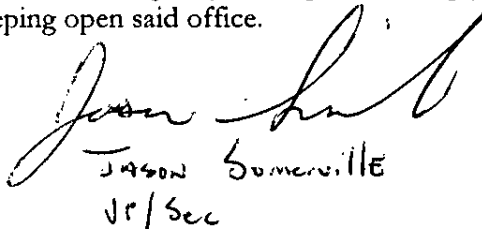 eping open said office.
Jason
JASON Somerville
VP/Sec